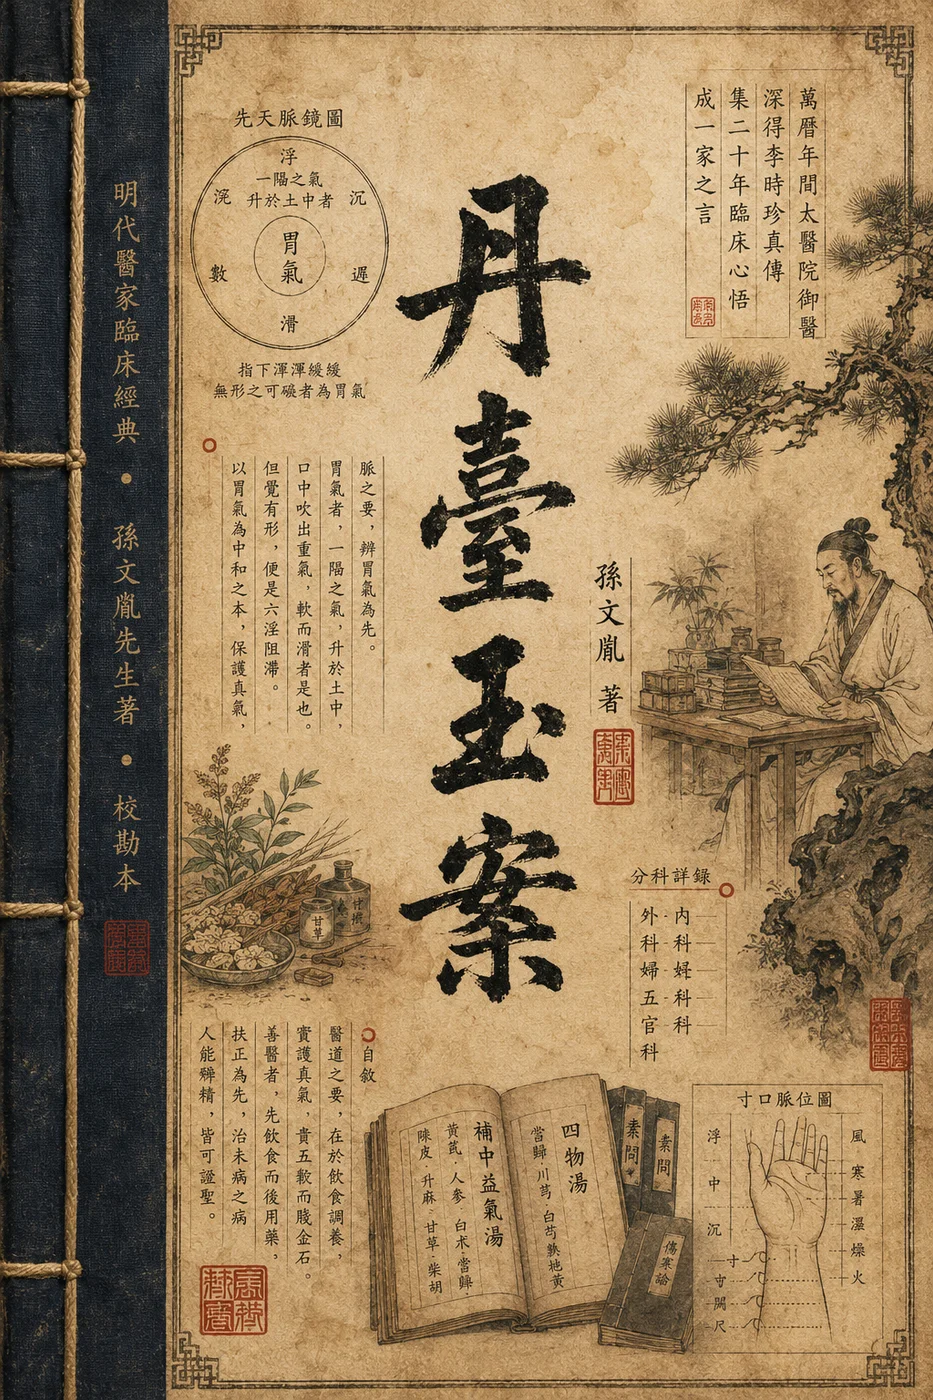 丹臺玉案
孫文胤 著
萬曆年間太醫院御醫
深得李時珍真傳
集二十年臨床心悟
成一家之言
明代醫家臨床經典 • 孫文胤先生著 • 校勘本
先天脈鏡圖
浮
一陽之氣
升於土中者
沉
遲
數
滑
胃氣
指下渾渾緩緩
無形之可礙者為胃氣
脈之要，辨胃氣為先。
胃氣者，一陽之氣，升於土中，
口中吹出重氣，軟而滑者是也。
但覺有形，便是六淫阻滯。
以胃氣為中和之本，保護真氣，
甘草
分科詳錄
內科
科科
外科婦五官科
自敘
醫道之要，在於飲食調養，
實護真氣，貴五穀而賤金石。
善醫者，先飲食而後用藥，
扶正為先，治未病之病
人能精，皆可證聖。
四物湯
當歸·川芎·白芍熟地黃
補中益氣湯
黃芪·人參·白朮·當歸
陳皮·升麻·甘草·柴胡
素問
素問
傷寒論
寸口脈位圖
浮
中
沉
寸
寸
關
尺
風
寒
暑
濕
燥
火